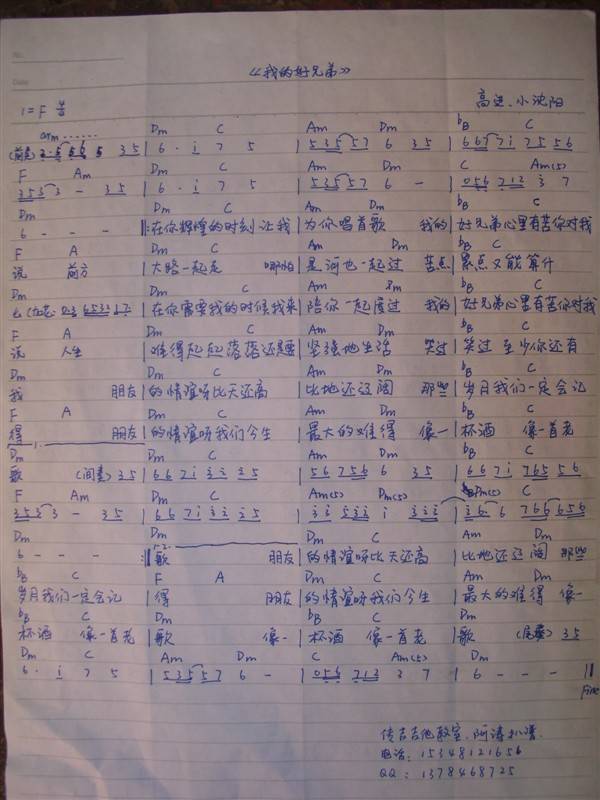 《我的好兄弟》
1=F
高进、小沈阳
Dm C Am Dm bB C
(前奏) 3 5 | 6 · i 7 5 | 5 3 5 5 7 6 3 5 | 6 6 7 7 i 7 5 5 6
F Am Dm C Am Dm C Am(5)
3 5 3 3 - 3 5 | 6 · i 7 5 | 5 3 5 5 7 6 - | 0 5 6 7 1 2 3 7
Dm Dm C Am Dm bB C
6 - - - ‖: 在你辉煌的时刻 让我 | 为你唱首歌 我的 | 好兄弟心里有苦你对我
F A Dm C Am Dm bB C
说 前方 | 大路一起走 哪怕 | 是河也一起过 苦点 | 累点又能算什
Dm Dm C Am bB C
在你需要我的时候我来 | 陪你一起度过 我的 | 好兄弟心里有苦你对我
F A Dm C Am Dm bB C
说 人生 | 难得起起落落还是要 | 坚强地生活 哭过 | 笑过 至少你还有
Dm C Dm C Am Dm bB C
我 朋友 | 的情谊呀比天还高 | 比地还辽阔 那些 | 岁月我们一定会记
F A Dm C Am Dm bB C
得 朋友 | 的情谊呀我们今生 | 最大的难得 像一 | 杯酒 像一首老
Dm Dm C Am Dm bB C
歌 (间奏) 3 5 | 6 6 7 i i i i 5 | 5 6 7 5 6 6 3 5 | 6 6 7 i 7 6 5 5 6
F Am Dm C Am(5) Dm(5) C
3 5 3 3 - 3 5 | 6 6 7 i i i i 5
Dm Dm Dm C Am Dm
6 - - - ‖ 1-2. 歌 朋友 | 的情谊呀比天还高 | 比地还辽阔 那些
bB C F A Dm C Am Dm
岁月我们一定会记 | 得 朋友 | 的情谊呀我们今生 | 最大的难得 像一
bB C Dm bB C Dm
杯酒 像一首老 | 歌 像一 | 杯酒 像一首老 | 歌 (尾奏) 3 5
Dm C Am Dm C Am(5) Dm
6 · i 7 5 | 5 3 5 5 7 6 - | 0 5 6 7 1 2 3 7 | 6 - - - ‖
Fine
吉他教室、阿涛扒谱.
电话: 15348121656
QQ: 1378468725